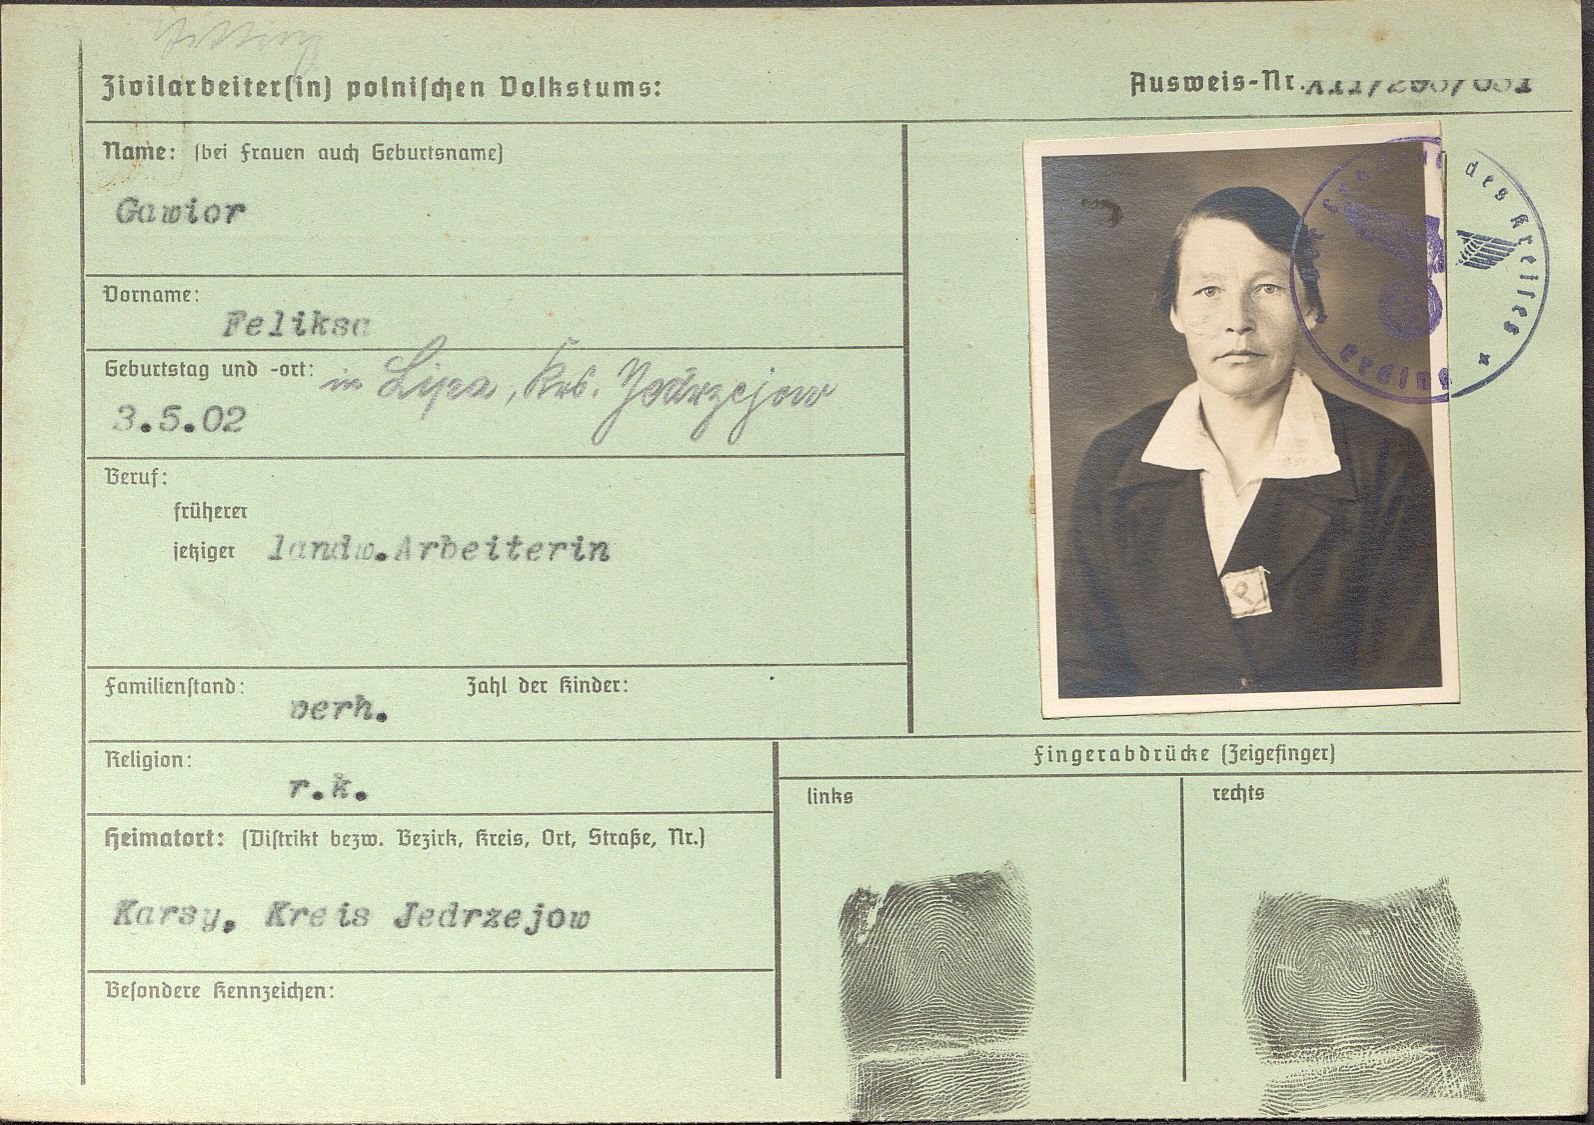 Zivilarbeiter(in) polnischen Volkstums:
Ausweis-Nr.
Name: (bei Frauen auch Geburtsname)
Gawior
Vorname:
Feliksa
Geburtstag und -ort: in Lipa, Krs. Jedrzejow
3.5.02
Beruf:
früherer
jetziger landw.Arbeiterin
Familienstand: verh.
Zahl der Kinder:
Religion:
r.k.
Heimatort: (Distrikt bezw. Bezirk, Kreis, Ort, Straße, Nr.)
Karsy, Kreis Jedrzejow
Besondere Kennzeichen:
P
Der Landrat des Kreises
Erding
Fingerabdrücke (Zeigefinger)
links
rechts